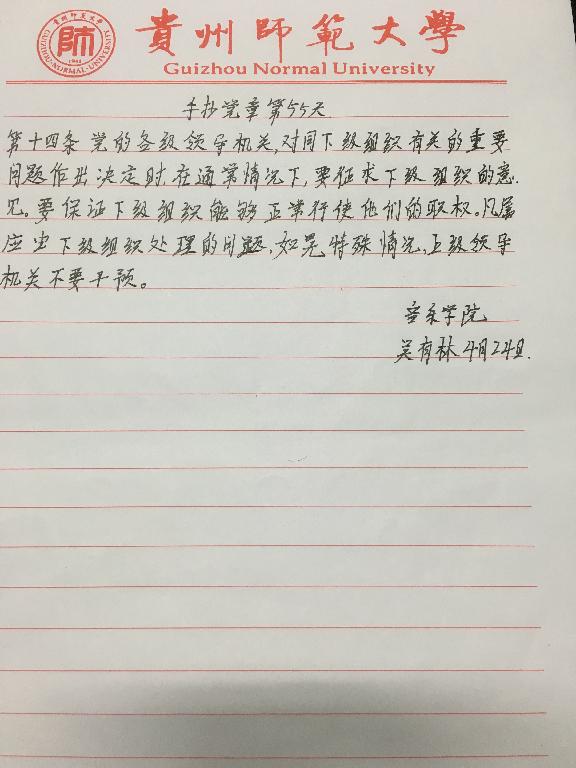 貴州師範大學
Guizhou Normal University
GUIZHOU·NORMAL·UNIVERSITY
1941
手抄党章第55天
第十四条 党的各级领导机关,对同下级组织有关的重要
问题作出决定时,在通常情况下,要征求下级组织的意
见。要保证下级组织能够正常行使他们的职权。凡属
应由下级组织处理的问题,如无特殊情况,上级领导
机关不要干预。
音乐学院
吴有林 4月24日.